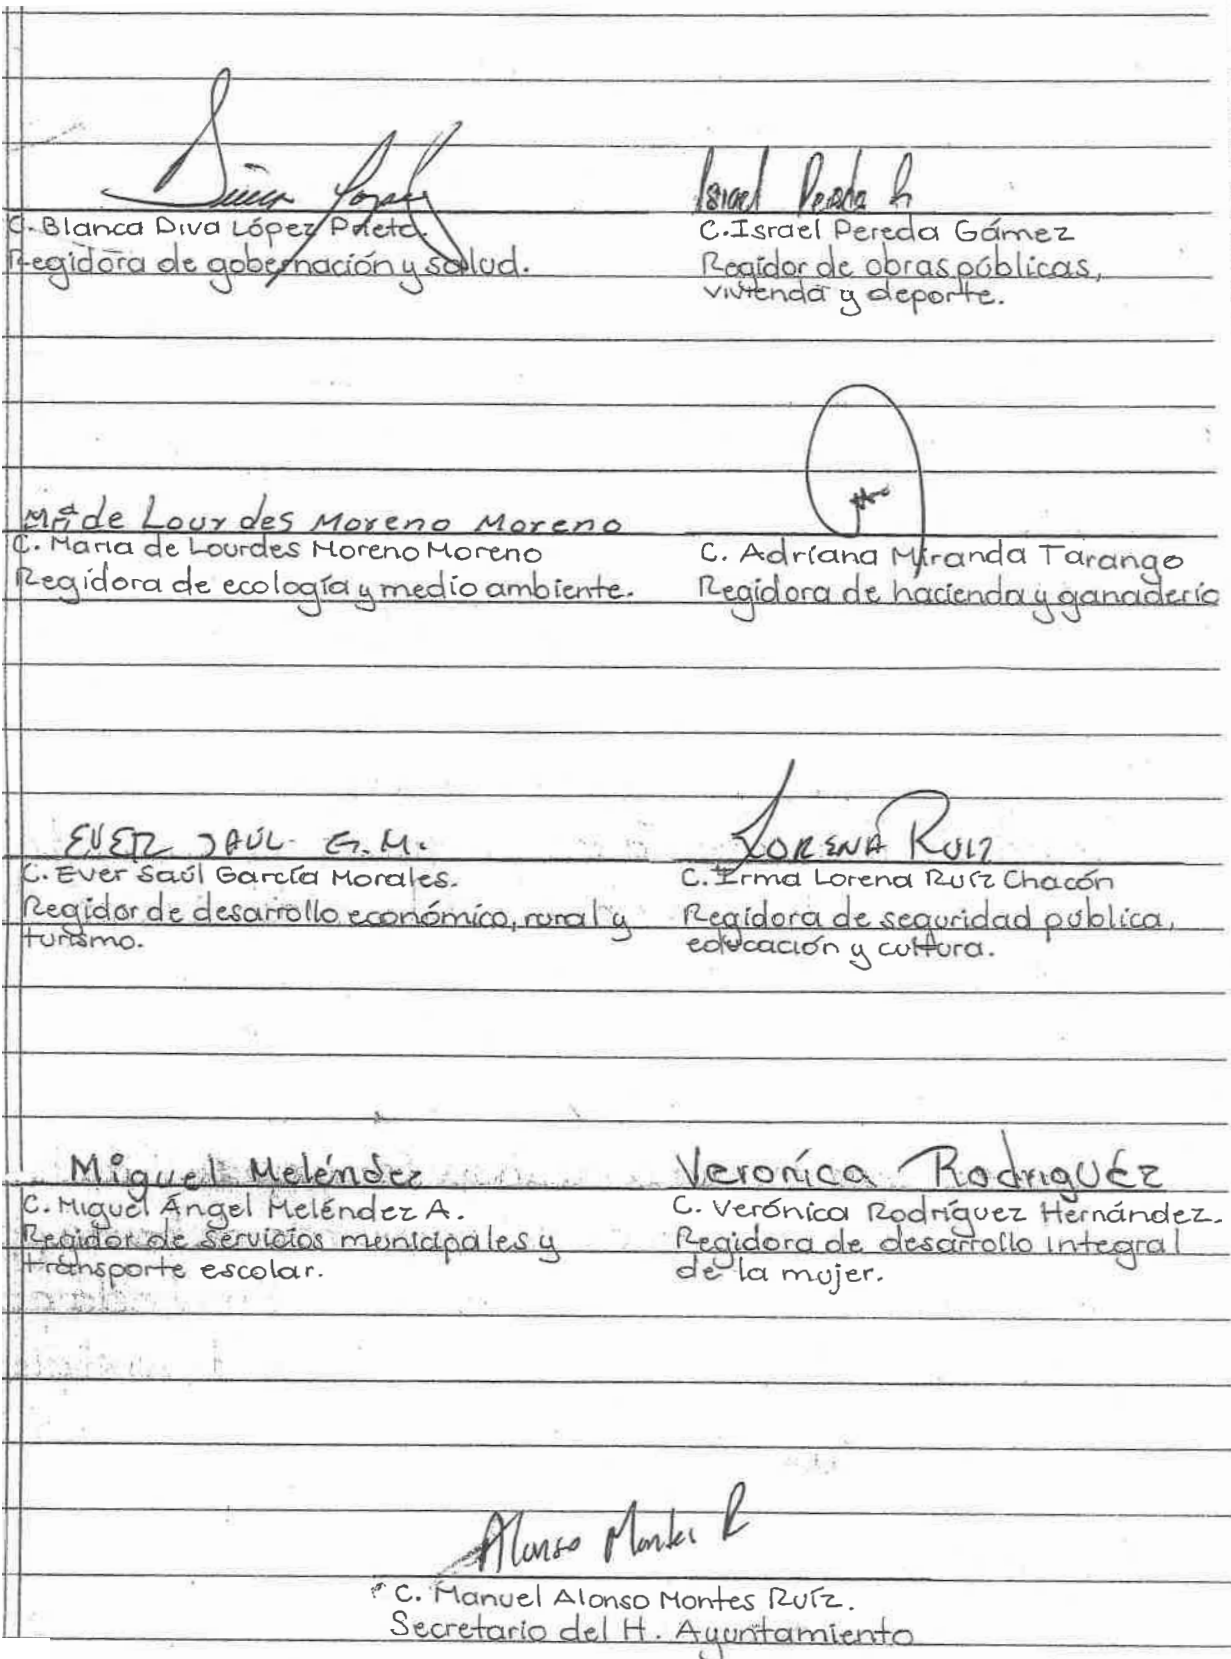 Diva Lopez
C. Blanca Diva López Prieto.
Regidora de gobernación y salud.
Israel Pereda G
C. Israel Pereda Gámez
Regidor de obras públicas,
vivienda y deporte.
Mª de Lourdes Moreno Moreno
C. Maria de Lourdes Moreno Moreno
Regidora de ecología y medio ambiente.
C. Adriana Miranda Tarango
Regidora de hacienda y ganadería
EVER SAÚL G.M.
C. Ever Saúl García Morales.
Regidor de desarrollo económico, rural y
turismo.
LORENA RUIZ
C. Irma Lorena Ruíz Chacón
Regidora de seguridad pública,
educación y cultura.
Miguel Meléndez
C. Miguel Ángel Meléndez A.
Regidor de servicios municipales y
transporte escolar.
Veronica Rodriguez
C. Verónica Rodríguez Hernández.
Regidora de desarrollo integral
de la mujer.
Alonso Montes R
C. Manuel Alonso Montes Ruíz.
Secretario del H. Ayuntamiento